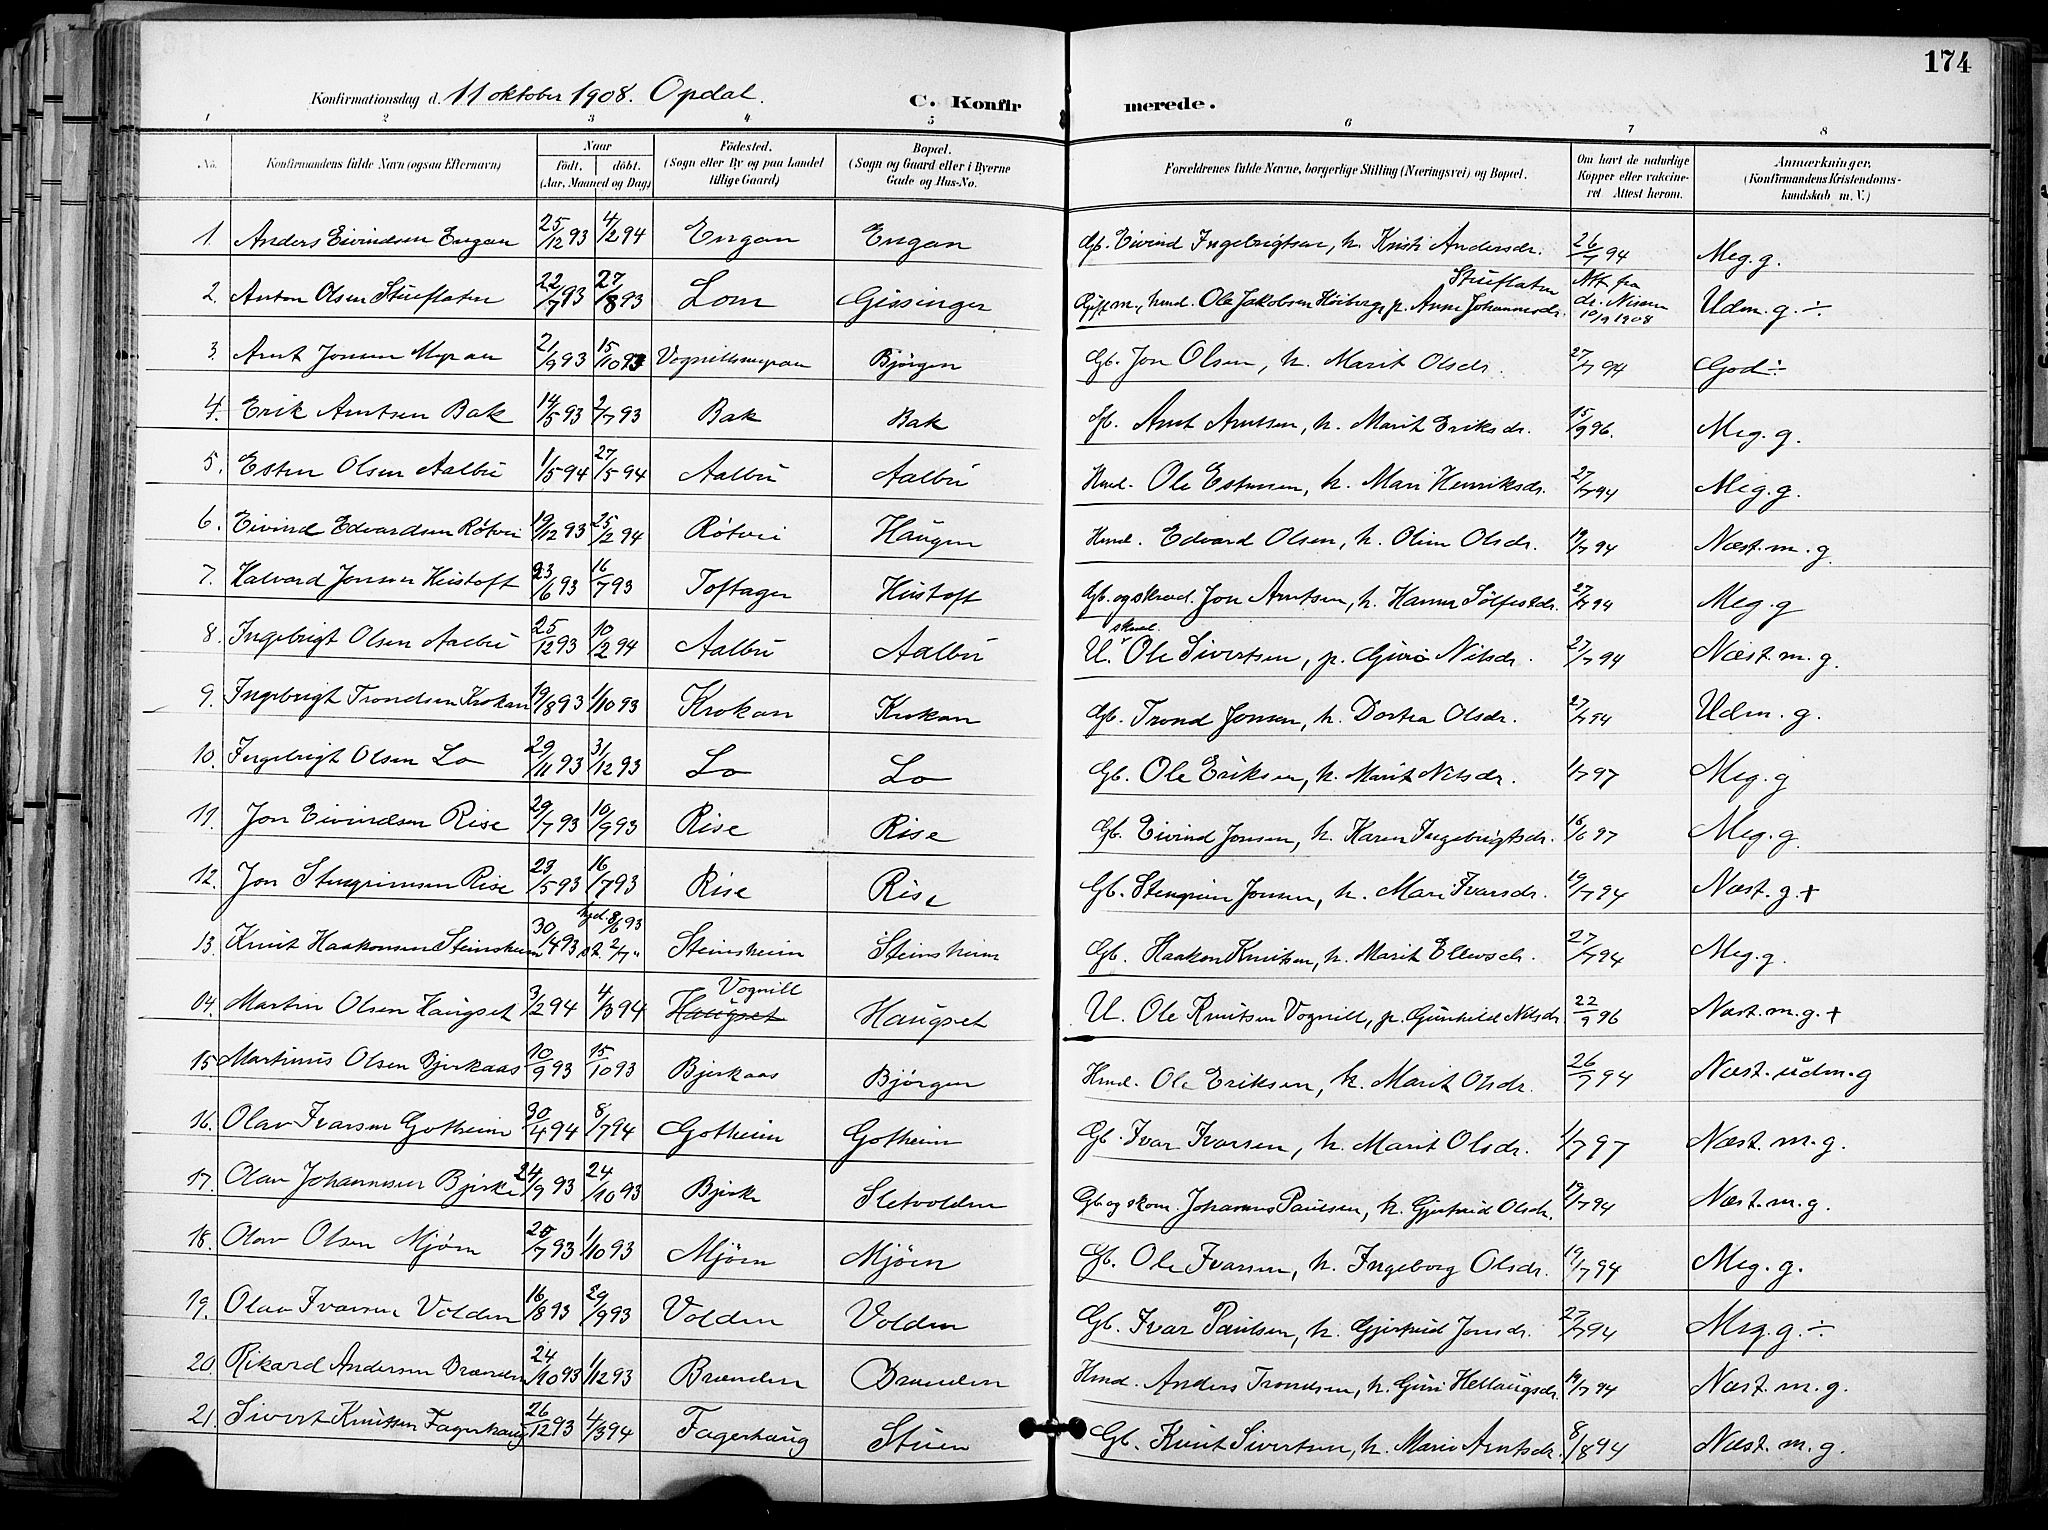 174
Konfirmationsdag d. 11 oktober 1908. Opdal. C. Konfirmerede.
1 2 3 4 5 6 7 8
No. Konfirmandens fulde Navn (ogsaa Efternavn) Naar født. døbt. (Aar, Maaned og Dag) Fødested. (Sogn eller By og paa Landet tillige Gaard) Bopæl. (Sogn og Gaard eller i Byerne Gade og Hus-No. Forældrenes fulde Navne, borgerlige Stilling (Næringsvei) og Bopæl. Om havt de naturlige Kopper eller vaccineret Attest herom. Anmærkninger, (Konfirmandens Kristendomskundskab m. V.)
1. Anders Eivindsen Engan 25/12 93 4/2 94 Engan Engan Gb. Eivind Ingebrigtsen, h. Kristi Andersdr. 26/7 94 Meg. g.
2. Anton Olsen Stueflaten 22/7 93 27/8 93 Lom Gissinger Gift m., hmd. Ole Jakobsen Høiberg, p. Anne Johannesdr. Stueflaten Att. fra dr. Nissen 10/9 1908 Udm. g. ÷
3. Arnt Jonsen Myran 21/9 93 15/10 93 Vognillsmyran Bjørgen Gb. Jon Olsen, h. Marit Olsdr. 27/7 94 God ÷
4. Erik Arntsen Bak 14/5 93 2/7 93 Bak Bak Gb. Arnt Arntsen, h. Marit Eriksdr. 15/9 96. Meg. g.
5. Esten Olsen Aalbu 1/5 94 27/5 94 Aalbu Aalbu Hmd. Ole Estensen, h. Mari Henriksdr. 27/7 94 Meg. g.
6. Eivind Edvardsen Røtvei 19/12 93 25/2 94 Røtvei Haugen Hmd. Edvard Olsen, h. Oline Olsdr. 19/7 94 Næst. m. g
7. Halvard Jonsen Hustoft 23/6 93 16/7 93 Toftager Hustoft Gb. og skred. Jon Arntsen, h. Hanna Sølfestdr. 27/7 94 Meg. g
8. Ingebrigt Olsen Aalbu 25/12 93 10/2 94 Aalbu Aalbu U. skmd. Ole Sivertsen, p. Guro Nilsdr. 27/7 94 Næst. m. g.
9. Ingebrigt Trondsen Krokan 19/8 93 1/10 93 Krokan Krokan Gb. Trond Jonsen, h. Dortea Olsdr. 27/7 94 Udm. g.
10. Ingebrigt Olsen Lo 29/11 93 31/12 93 Lo Lo Gb. Ole Eriksen, h. Marit Nilsdr. 1/7 97 Meg. g
11. Jon Eivindsen Rise 29/7 93 10/9 93 Rise Rise Gb. Eivind Jonsen, h. Karen Ingebrigtsdr. 16/6 97 Meg. g.
12. Jon Stengrimsen Rise 23/5 93 16/7 93 Rise Rise Gb. Stengrim Jonsen, h. Mari Ivarsdr. 19/7 94 Næst. g. +
13. Knut Haakonsen Steinsheim 30/4 93 hjd. 8/6 93 2/7 " Steinsheim Steinsheim Gb. Haakon Knutsen, h. Marit Ellevsdr. 27/7 94 Meg. g.
14. Martin Olsen Haugset 3/2 94 4/3 94 Vognill Haugset Haugset U. Ole Knutsen Vognill, p. Gunhild Nilsdr. 22/9 96 Næst. m. g. +
15 Martinus Olsen Bjerkaas 10/9 93 15/10 93 Bjerkaas Bjørgen Hmd. Ole Eriksen, h. Marit Olsdr. 26/7 94 Næst. udm. g
16. Olav Ivarsen Gotheim 30/4 94 8/7 94 Gotheim Gotheim Gb. Ivar Ivarsen, h. Marit Olsdr. 1/7 97 Næst. m. g.
17. Olav Johannesen Bjerke 24/9 93 24/10 93 Bjerke Sletvolden Gb. og skom. Johannes Paulsen, h. Gjertrud Olsdr. 19/7 94 Næst. m. g.
18. Olav Olsen Mjøen 25/7 93 1/10 93 Mjøen Mjøen Gb. Ole Ivarsen, h. Ingeborg Olsdr. 19/7 94 Meg. g.
19. Olav Ivarsen Volden 16/8 93 29/9 93 Volden Volden Gb. Ivar Paulsen, h. Gjertrud Jonsdr. 27/7 94 Meg. g. ÷
20. Rikard Andersen Brænden 24/10 93 1/12 93 Brænden Brænden Hmd. Anders Trondsen, h. Guri Hellaugsdr. 19/7 94 Næst. m. g.
21. Sivert Knutsen Fagerhaug 26/12 93 4/3 94 Fagerhaug Stuen Gb. Knut Sivertsen, h. Mari Arntsdr. 8/8 94 Næst. m. g.